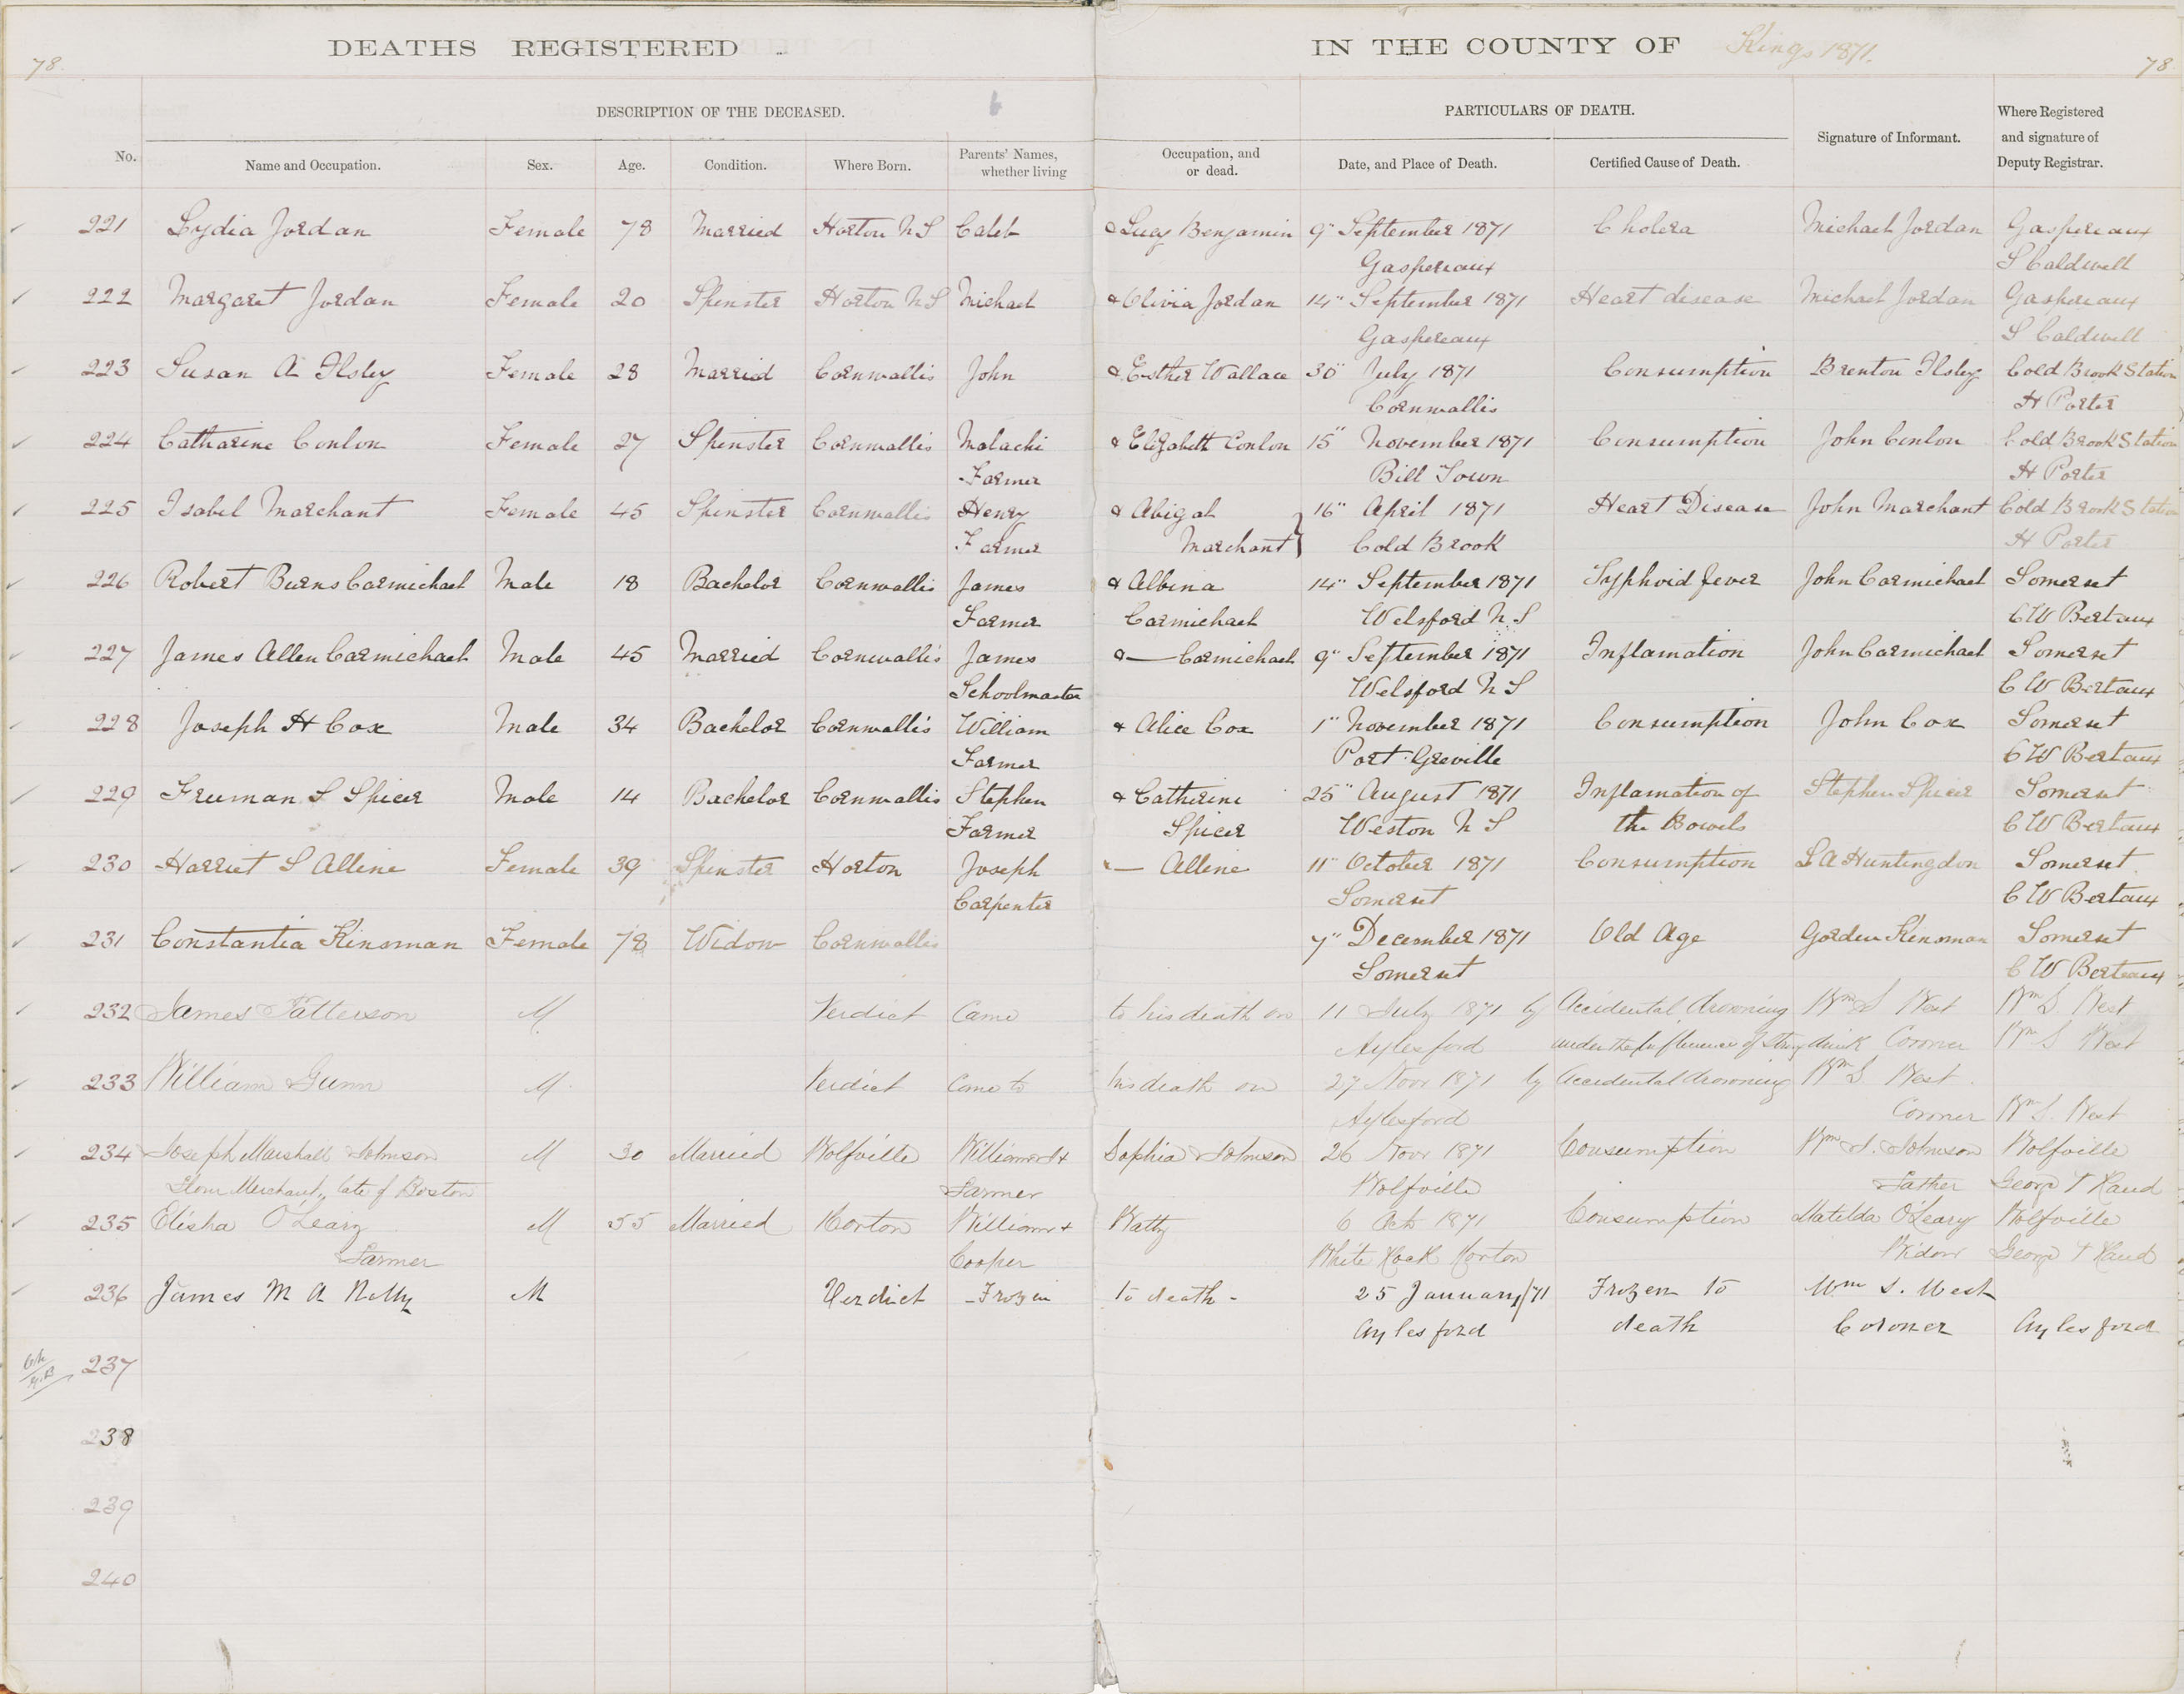 DEATHS REGISTERED IN THE COUNTY OF Kings 1871.
78. 78
DESCRIPTION OF THE DECEASED. PARTICULARS OF DEATH. Signature of Informant. Where Registered and signature of Deputy Registrar.
No. Name and Occupation. Sex. Age. Condition. Where Born. Parents' Names, whether living Occupation, and or dead. Date, and Place of Death. Certified Cause of Death.
221 Lydia Jordan Female 78 Married Horton N S Caleb & Lucy Benjamin 9" September 1871 Cholera Michael Jordan Gaspereaux
Gaspereaux S Caldwell
222 Margaret Jordan Female 20 Spinster Horton N S Michael & Olivia Jordan 14" September 1871 Heart disease Michael Jordan Gaspereaux
Gaspereaux S Caldwell
223 Susan A Ilsley Female 28 Married Cornwallis John & Esther Wallace 30" July 1871 Consumption Brenton Ilsley Cold Brook Station
Cornwallis H Porter
224 Catharine Conlon Female 27 Spinster Cornwallis Malachi & Elizabeth Conlon 15" November 1871 Consumption John Conlon Cold Brook Station
Farmer Bill Town H Porter
225 Isabel Marchant Female 45 Spinster Cornwallis Henry & Abigah 16" April 1871 Heart Disease John Marchant Cold Brook Station
Farmer Marchant } Cold Brook H Porter
226 Robert Burns Carmichael Male 18 Bachelor Cornwallis James & Albina 14" September 1871 Typhoid fever John Carmichael Somerset
Farmer Carmichael Welsford N. S C W Bertaux
227 James Allen Carmichael Male 45 Married Cornwallis James & — Carmichael 9" September 1871 Inflamation John Carmichael Somerset
Schoolmaster Welsford N S C W Bertaux
228 Joseph H Cox Male 34 Bachelor Cornwallis William & Alice Cox 1" November 1871 Consumption John Cox Somerset
Farmer Port Greville C W Bertaux
229 Fruman S Spicer Male 14 Bachelor Cornwallis Stephen & Catherine 25" August 1871 Inflamation of Stephen Spicer Somerset
Farmer Spicer Weston N S the Bowels C W Bertaux
230 Harriet S Alline Female 39 Spinster Horton Joseph & — Alline 11" October 1871 Consumption S A Huntingdon Somerset
Carpenter Somerset C W Bertaux
231 Constantia Kinsman Female 78 Widow Cornwallis 7" December 1871 Old Age Gorden Kinsman Somerset
Somerset C W Bertaux
232 James Patterson M. Verdict Came to his death on 11 July 1871 by Accidental drowning Wm S West Wm S. West
Aylesford under the influence of Strong drink Coroner Wm S West
233 William Gunn M. Verdict Came to his death on 27 Novr 1871 by Accidental drowning Wm S West
Aylesford Coroner Wm S. West
234 Joseph Marshall Johnson M 30 Married Wolfville William & Sophia Johnson 26 Novr 1871 Consumption Wm J. Johnson Wolfville
Merchant, late of Boston Farmer Wolfville Father George T Rand
235 Elisha O'Leary M 55 Married Horton William & Watty 6 Oct 1871 Consumption Matilda O'Leary Wolfville
Farmer Cooper White Rock Horton Widow George T Rand
236 James M A Nelly M Verdict – Frozen to death – 25 January/71 Frozen to Wm S. West
Aylesford death Coroner Aylesford
237
238
239
240